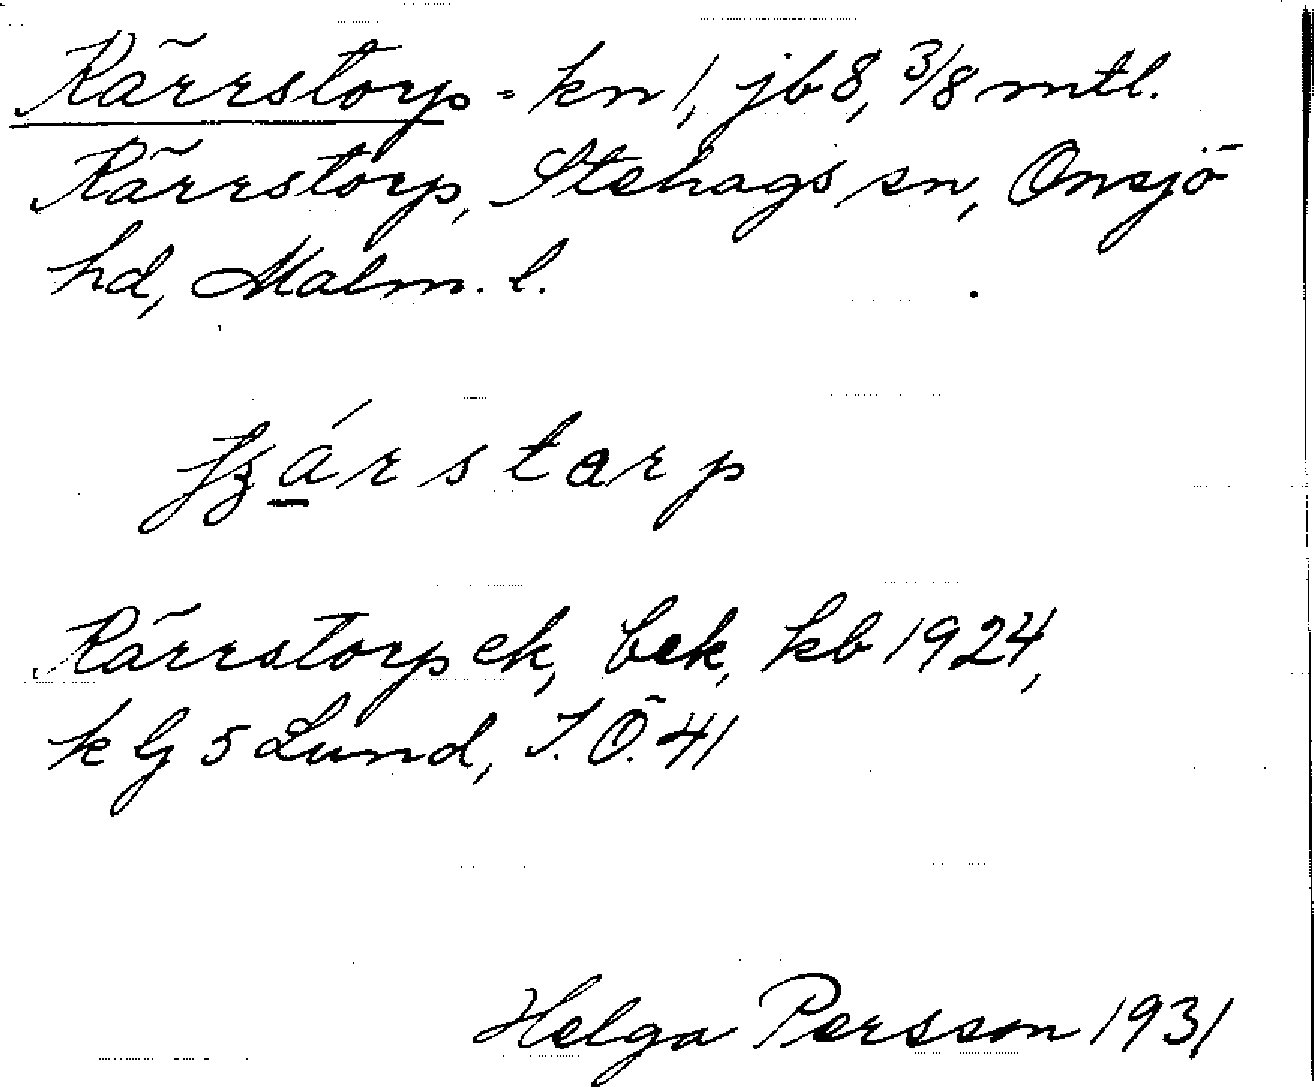 Kärrstorp - kn 1, jb 8, 3/8 mtl.
Kärrstorp, Stehags sn, Onsjö
hd, Malm. l.
Kärrstorp ek, bek, kb 1924,
k G 5 Lund, J. Ö. 41
Helga Persson 1931